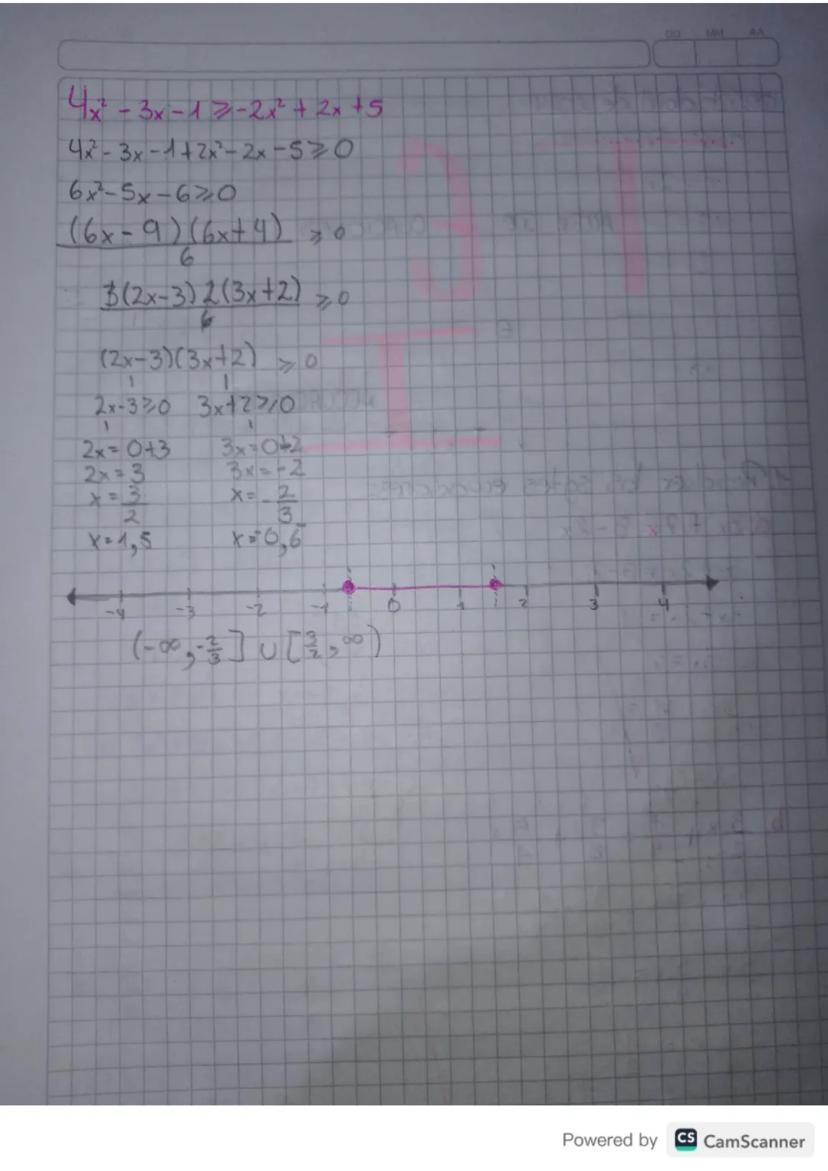 DD MM AA
4x² - 3x - 1 ⩾ -2x² + 2x + 5
4x² - 3x - 1 + 2x² - 2x - 5 ⩾ 0
6x² - 5x - 6 ⩾ 0
(6x - 9)(6x + 4) ⩾ 0
6
3(2x-3) 2(3x+2) ⩾ 0
6
(2x-3)(3x+2) ⩾ 0
2x-3⩾0 3x+2⩾0
2x = 0+3 3x = 0-2
2x = 3 3x = -2
x = 3/2 x = -2/3
x = 1,5 x = -0,6
-4 -3 -2 -1 0 1 2 3 4
(-∞, -2/3] ∪ [3/2, ∞)
Powered by CS CamScanner